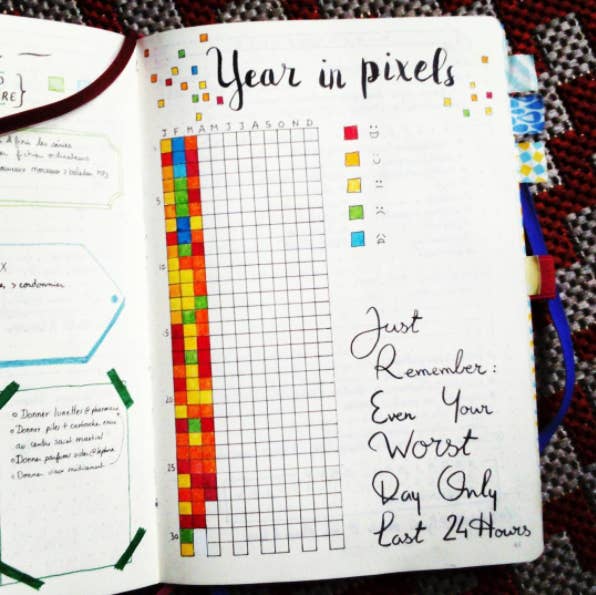 RE}
finir les séries
fichier ordinateurs
baladeur MP3
X
> cordonnier
Donner lunettes @ pharmacie
Donner piles + cartouche encre
au centre
Donner parfums vides @
Donner vieux médicament
Year in pixels
J F M A M J J A S O N D
5
10
25
30
:D
:)
:|
:(
Just
Remember:
Even Your
Worst
Day Only
Last 24 Hours